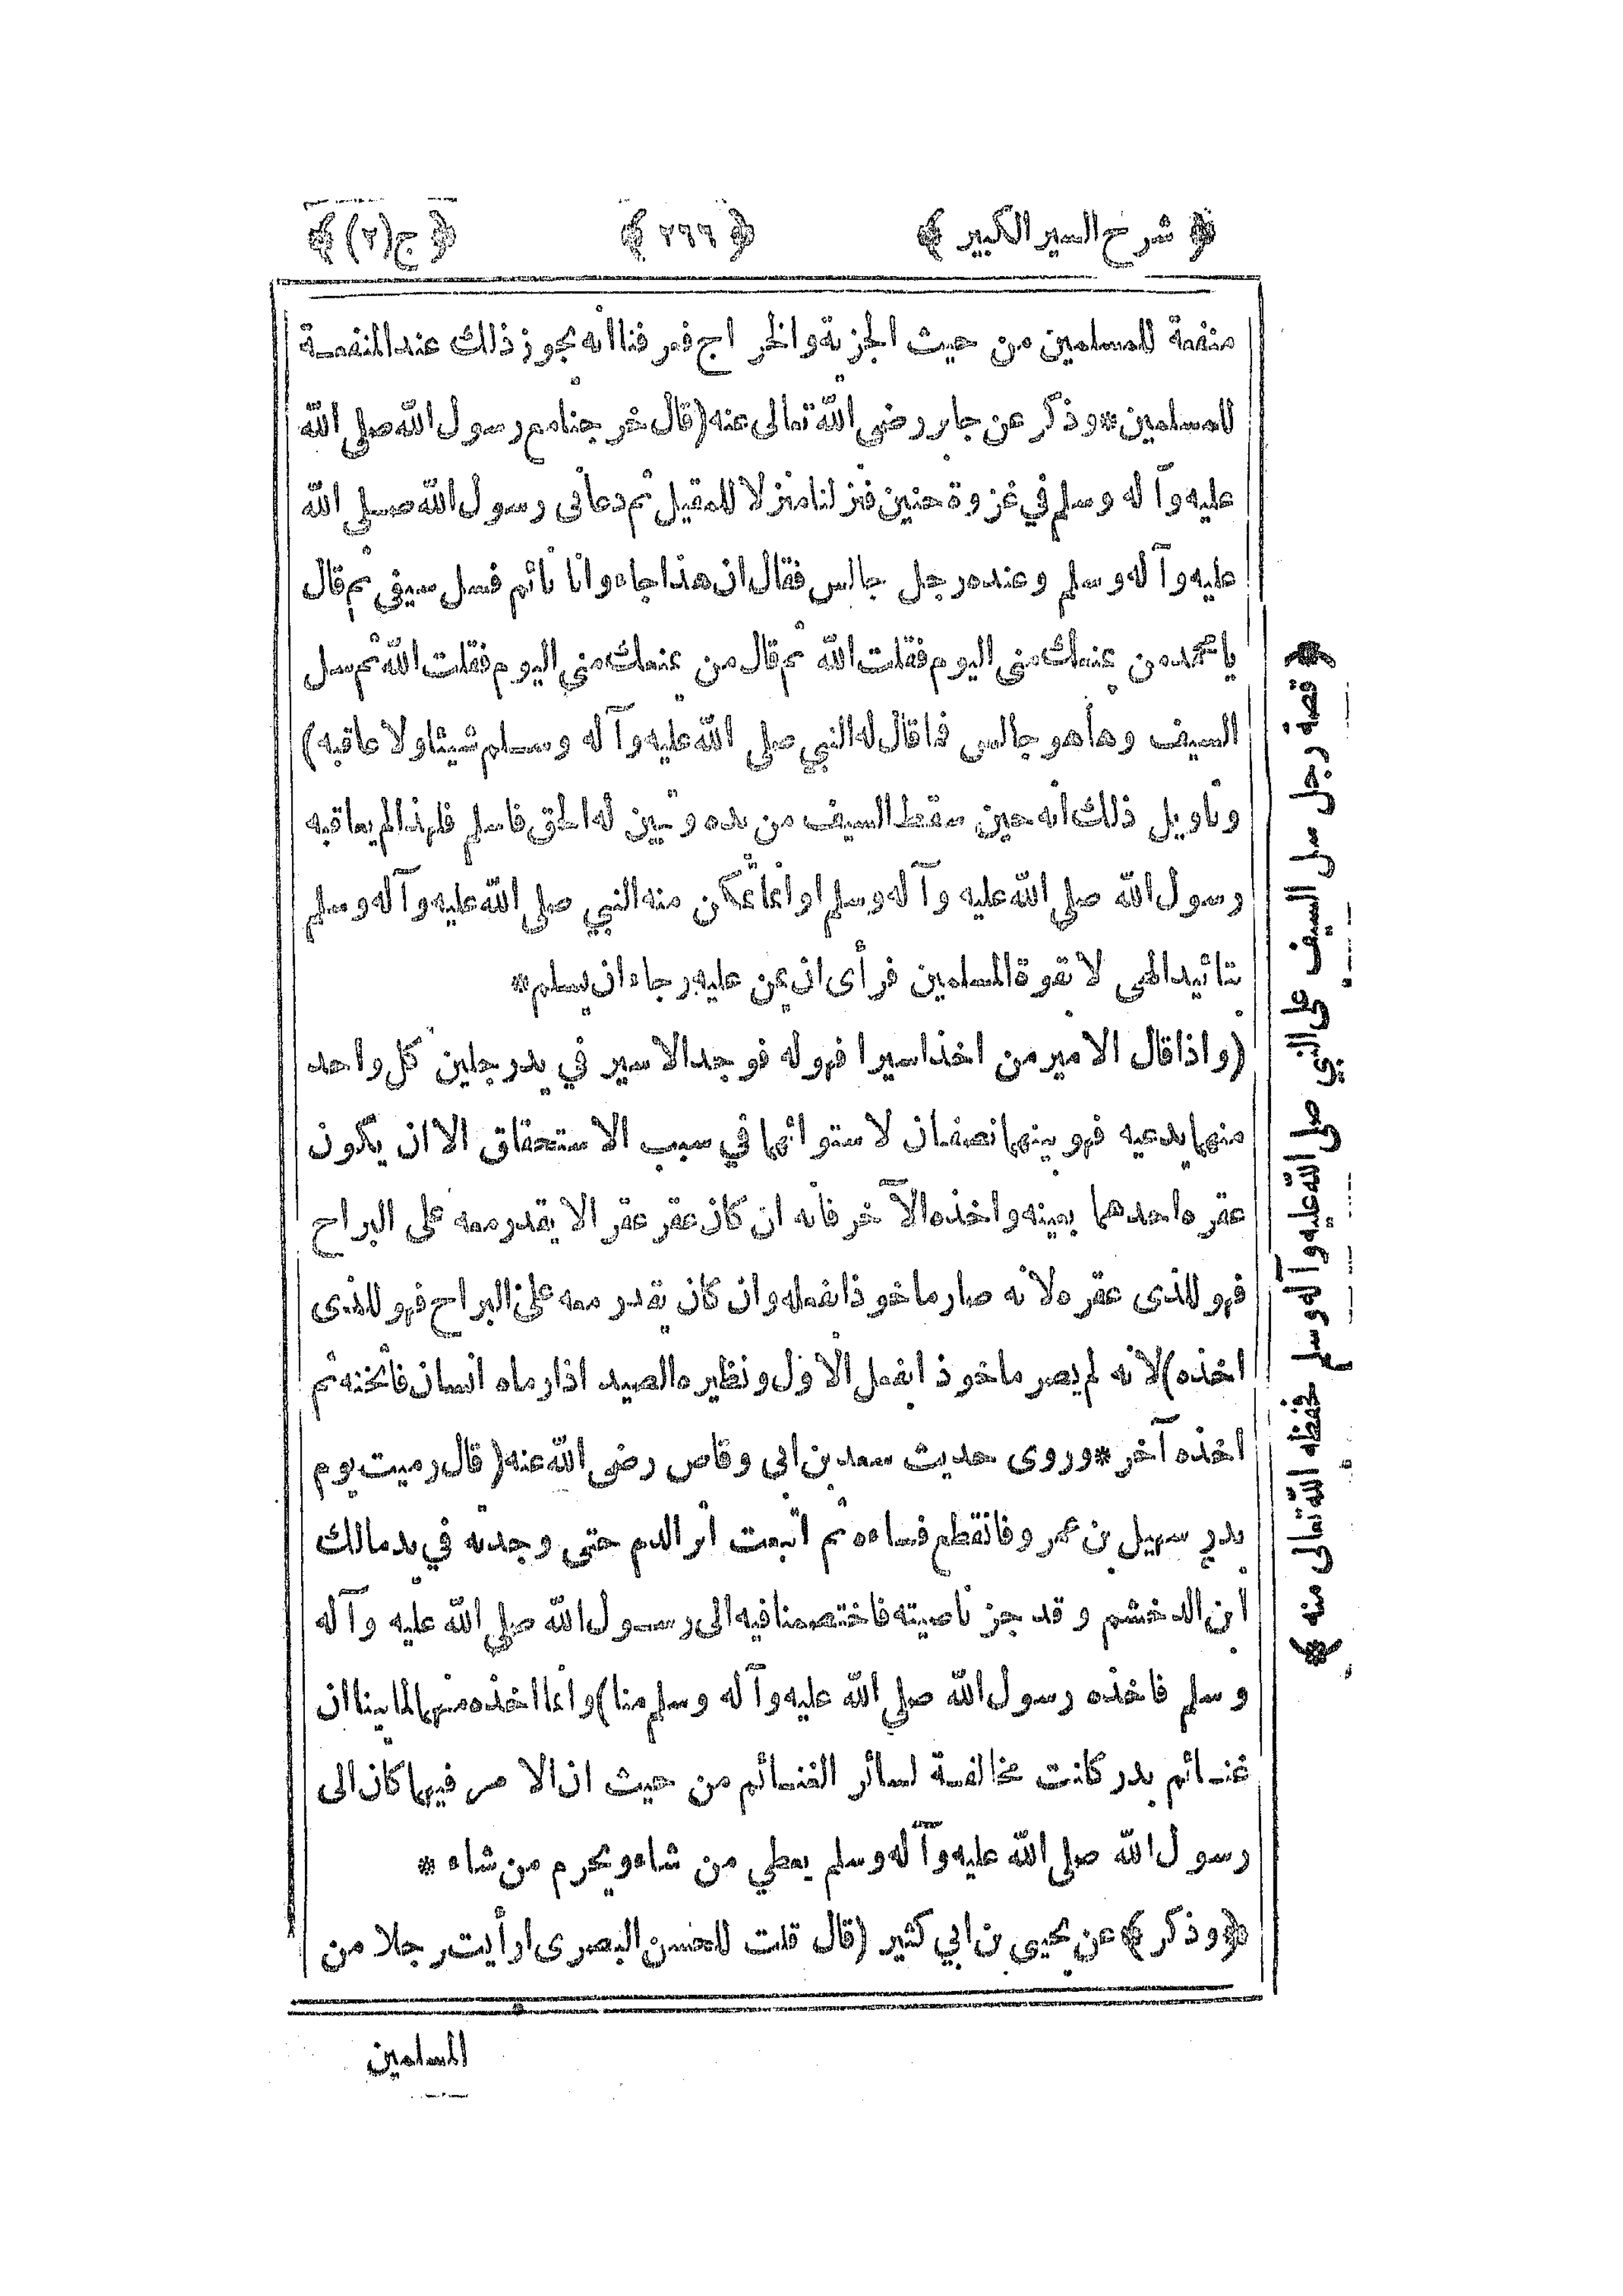 ﴿ شرح السير الكبير ﴾ ﴿ ٢٦٦ ﴾ ﴿ ج(٢) ﴾
منفعة للمسلمين من حيث الجزية والخراج فعرفنا انه يجوز ذلك عند المنفعة
للمسلمين * وذكر عن جابر رضى الله تعالى عنه (قال خرجنا مع رسول الله صلى الله
عليه وآله وسلم في غزوة حنين فنزلنا منزلا للمقيل ثم دعانى رسول الله صلى الله
عليه وآله وسلم وعنده رجل جالس فقال ان هذا جاء وانا نائم فسل سيفي ثم قال
يا محمد من يمنعك منى اليوم فقلت الله ثم قال من يمنعك منى اليوم فقلت الله ثم سل
السيف وها هو جالس فما قال له النبي صلى الله عليه وآله وسلم شيئا ولا عاقبه)
وتاويل ذلك انه حين سقط السيف من يده وتبين له الحق فاسلم فلهذا لم يعاقبه
رسول الله صلى الله عليه وآله وسلم او انما تمكن منه النبي صلى الله عليه وآله وسلم
بتائيد الهى لا بقوة المسلمين فرأى ان يمن عليه رجاء ان يسلم *
(واذا قال الامير من اخذ اسيرا فهو له فوجد الاسير في يد رجلين كل واحد
منهما يدعيه فهو بينهما نصفان لاستوائهما في سبب الاستحقاق الا ان يكون
عقره احدهما بعينه واخذه الآخر فانه ان كان عقر عقرا لا يقدر معه على البراح
فهو للذى عقره لانه صار ماخوذا بفعله وان كان يقدر معه على البراح فهو للذى
اخذه) لانه لم يصر ماخوذا بفعل الاول ونظيره الصيد اذا رماه انسان فاثخنه ثم
اخذه آخر * وروى حديث سعد بن ابى وقاص رضى الله عنه (قال رميت يوم
بدر سهيل بن عمرو فانقطع نساءه ثم اتبعت اثر الدم حتى وجدته في يد مالك
ابن الدخشم وقد جز ناصيته فاختصمنا فيه الى رسول الله صلى الله عليه وآله
وسلم فاخذه رسول الله صلى الله عليه وآله وسلم منا) وانما اخذه منهما لما بينا ان
غنائم بدر كانت مخالفة لسائر الغنائم من حيث ان الامر فيها كان الى
رسول الله صلى الله عليه وآله وسلم يعطي من شاء ويحرم من شاء *
﴿وذكر﴾ عن يحيى بن ابي كثير (قال قلت للحسن البصرى ارأيت رجلا من
المسلمين
﴿ قصة رجل سل السيف على النبي صلى الله عليه وآله وسلم فحفظه الله تعالى منه ﴾